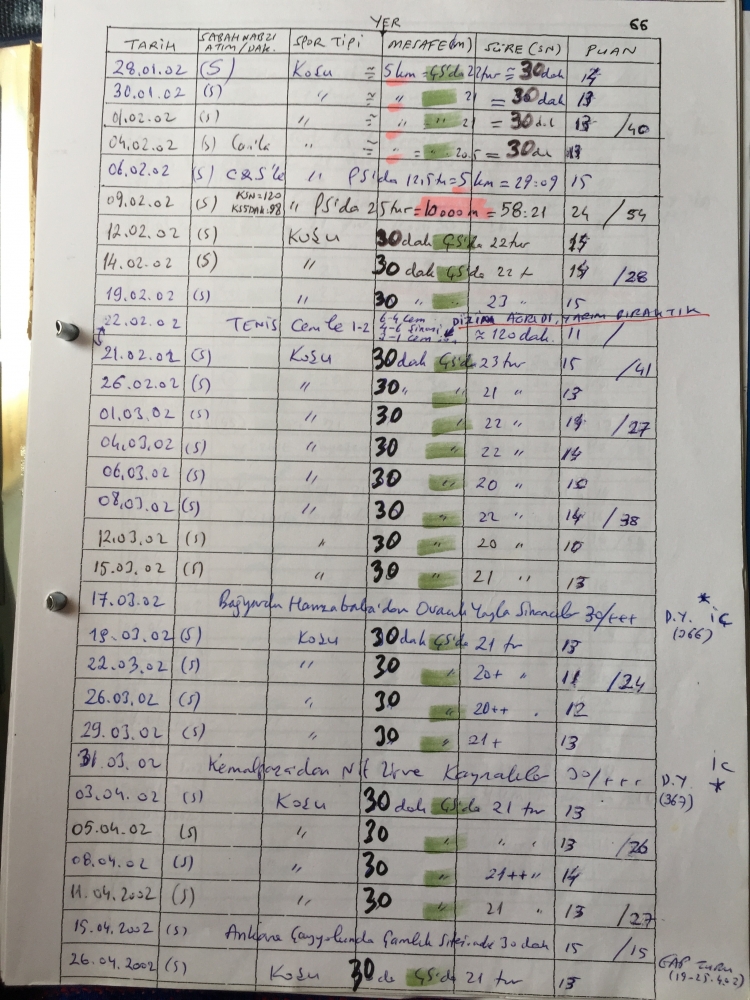 YER 66
TARİH SABAH NABZI ATIM/DAK. SPOR TİPİ MESAFE (M) SÜRE (SN) PUAN
28.01.02 (S) KOŞU ≅ 5 km = ÇS'da 22 tur ≅ 30 dak 14
30.01.02 (S) " ≅ " 21 = 30 dak 13
01.02.02 (S) " ≅ " " 21 = 30 dak 13 /40
04.02.02 (S) Cem'le " ≅ " = 20.5 = 30 dak 13
06.02.02 (S) C&S'le " PS'da 12,5 tur = 5 km = 29:09 15
09.02.02 (S) KSN=120 KS5DAK:98 " PS'da 25 tur = 10000 m = 58:21 24 /54
12.02.02 (S) KOŞU 30 dak ÇS'da 22 tur 14
14.02.02 (S) " 30 dak ÇS'da 22 t 14 /28
19.02.02 (S) " 30 " " 23 " 15
DİZİM AĞRIDI, YARIM BIRAKTIK
22.02.02 TENİS Cem'le 1-2 6-4 Cem 4-6 Sinasi ≅ 120 dak. 11 /
21.02.02 (S) KOŞU 30 dak ÇS'da 23 tur 15 /41
26.02.02 (S) " 30 " " 21 " 13
01.03.02 (S) " 30 " 22 " 14 /27
04.03.02 (S) " 30 " 22 " 14
06.03.02 (S) " 30 " 20 " 10
08.03.02 (S) " 30 " 22 " 14 /38
12.03.02 (S) " 30 " 20 " 10
15.03.02 (S) " 30 " 21 " 13
17.03.02 Hamzababa'dan Ovacık Yayla 30/+++ D.Y. * iç (366)
19.03.02 (S) KOŞU 30 dak ÇS'da 21 tur 13
22.03.02 (S) " 30 " 20+ " 11 /24
26.03.02 (S) " 30 " 20++ " 12
29.03.02 (S) " 30 " 21+ 13
31.03.02 Kemalpaşa'dan Nif Zirve Kaynaklar 30/+++ D.Y. iç * (367)
03.04.02 (S) KOŞU 30 dak ÇS'da 21 tur 13
05.04.02 (S) " 30 " " " 13 /26
08.04.02 (S) " 30 " 21++ " 14
11.04.2002 (S) " 30 " 21 " 13 /27
15.04.2002 (S) Ankara Çayyolunda Çamlık Sitesinde 30 dak 15 /15
26.04.2002 (S) KOŞU 30 da ÇS'da 21 tur 13 GAP TURU (19-25.4.02)